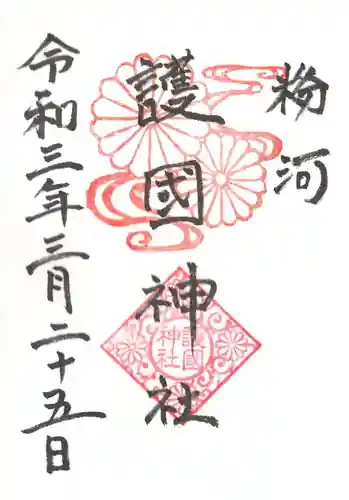 粉河
護國神社
令和三年三月二十五日
護國
神社